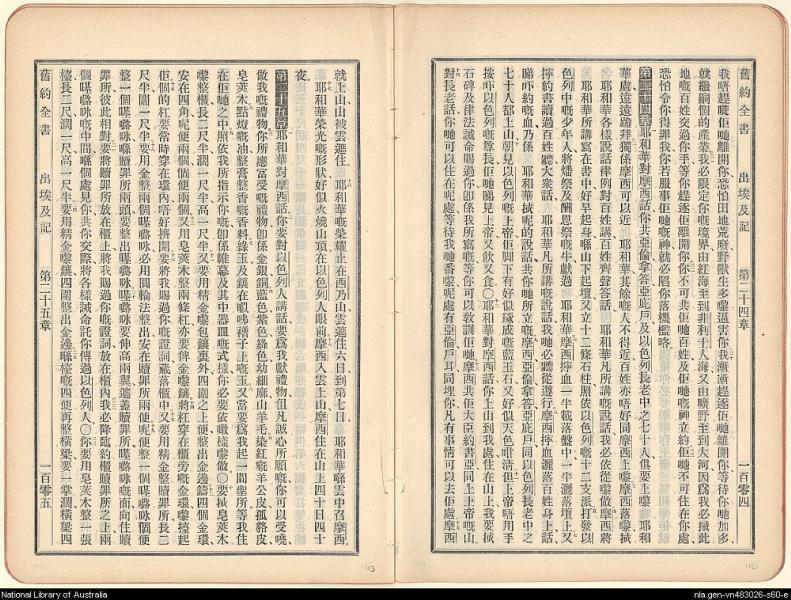 舊約全書　出埃及記　第二十四章　一百零四
我唔趕嚟佢哋離開你恐怕田地荒廢野獸生多嚟逼害你我漸漸趕逐佢哋離開你等待你哋加多
就繼嗣個的產業我必限定你嘅境界由紅海至到非利士人海又由曠野至到大河因爲我必將此
地嘅百姓交過你手等你趕逐佢離開你你不可共佢哋百姓及佢哋嘅神立約佢哋不可住在你處
恐怕令你得罪我你若服事佢哋嘅神就必陷你落機檻咯
第二十四章耶和華對摩西話你共亞倫拿答亞庇戶及以色列長老中之七十人俱要上嚟　耶和
華處遠遠跪拜獨係摩西可以近　耶和華其餘嘅人不得近百姓亦唔好同摩西上嚟摩西落嚟將
耶和華各樣說話律例對百姓講百姓齊聲答話　耶和華凡所講嘅說話我必依從嚟做摩西將
耶和華所講寫在書中好早起身喺山下起壇又立十二條石柱照依以色列嘅十二支派打發以
色列中嘅少年人將燔祭及酬恩祭嘅牛獻過　耶和華摩西將血一半載落盤中一半灑落壇上又
將約書讀過百姓聽大衆話　耶和華凡所講嘅說話我哋必聽從遵行摩西將血灑落百姓身上話
睇吓約嘅血乃係　耶和華將呢的說話共你哋所立嘅摩西亞倫拿答亞庇戶同以色列長老中之
七十人都上山朝見以色列嘅上帝佢脚下有好似琢成嘅藍玉石又好似天色咁淸但上帝唔用手
按吓以色列嘅尊長佢哋睇見上帝又飲又食〇耶和華對摩西話你上山到我處住在山上我要將
石碑及律法誡命賜過你卽係我所寫嘅等你可以敎訓佢哋摩西共佢大臣約書亞同上上帝嘅山
對長老話你哋可以住在呢處等待我哋番嚟呢處有亞倫戶耳同埋你凡有事情可以去佢處摩西
就上山山被雲遮住　耶和華嘅榮耀止在西乃山雲遮住六日到第七日　耶和華喺雲中召摩西
耶和華榮光嘅形狀好似火燒山頂在以色列人眼前摩西入雲上山摩西住在山上四十日四十
夜
第二十五章耶和華對摩西話你要對以色列人講話要爲我獻禮物但凡誠心所願嘅你可以受嘵
做我嘅禮物你所應當受嘅禮物卽係金銀銅藍色紫色綠色幼細麻山羊毛染紅嘅羊公皮孤貉皮
皂莢木點燈嘅油整膏整香嘅香料綠玉及鑲在㡌咈褡子上嘅玉又當要爲我起一間聖所等我住
在佢哋之中照依我所指示你嘅卽係帷幕及其中器皿嘅式樣你必要依噉樣嚟做〇要將皂莢木
嚟整櫃長二尺半濶一尺半高一尺半又要用精金嚟包鑲裏外四圍之上便整出金邊鑄四個金環
安在四角呢便兩個個便兩個又用皂莢木整兩條杠亦要俾金嚟鑲將杠穿在櫃旁嘅金環嚟擡起
佢個的杠要常時穿在環內唔好擒開要將我賜過你嘅證詞藏落櫃中又要用精金整贖罪所長二
尺半闊一尺半要用金整兩個㗎嚕㗎必用圓輪法整出安在贖罪所兩便呢便整一個㗎嚕㗎個便
整一個㗎嚕㗎喺贖罪所兩頭要整出㗎嚕㗎㗎嚕㗎要伸高兩翼遮蓋贖罪所㗎嚕㗎嘅面向住贖
罪所彼此相對要將贖罪所放在櫃上將我賜過你嘅證詞放在櫃內我必降臨約櫃贖罪所之上兩
個㗎嚕㗎嘅中間喺個處見你共你交際將各樣誡命託你傳過以色列人〇你要用皂莢木整一張
檯長二尺濶一尺高一尺半要用精金嚟鑲四圍整出金邊喺檯嘅四便再整橫梁要一掌濶橫梁四
舊約全書　出埃及記　第二十五章　一百零五
113
112
National Library of Australia
nla.gen-vn483026-s60-e